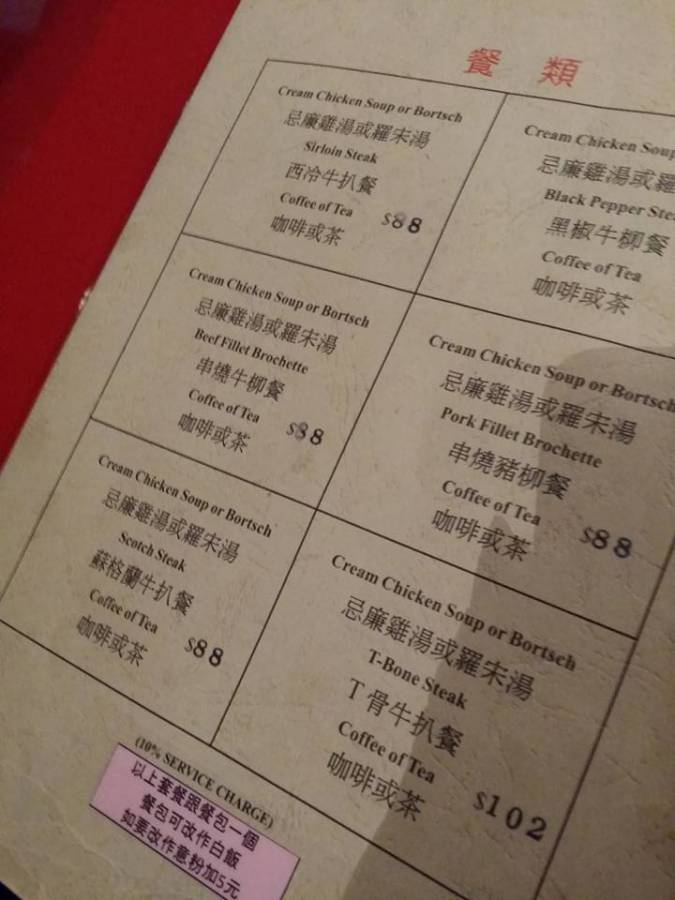 餐 類
Cream Chicken Soup or Bortsch
忌廉雞湯或羅宋湯
Sirloin Steak
西冷牛扒餐
Coffee of Tea
咖啡或茶 $88
Cream Chicken Soup
忌廉雞湯或羅
Black Pepper Stea
黑椒牛柳餐
Coffee of Tea
咖啡或茶
Cream Chicken Soup or Bortsch
忌廉雞湯或羅宋湯
Beef Fillet Brochette
串燒牛柳餐
Coffee of Tea
咖啡或茶 $88
Cream Chicken Soup or Bortsch
忌廉雞湯或羅宋湯
Pork Fillet Brochette
串燒豬柳餐
Coffee of Tea
咖啡或茶 $88
Cream Chicken Soup or Bortsch
忌廉雞湯或羅宋湯
Scotch Steak
蘇格蘭牛扒餐
Coffee of Tea
咖啡或茶 $88
Cream Chicken Soup or Bortsch
忌廉雞湯或羅宋湯
T-Bone Steak
T骨牛扒餐
Coffee of Tea
咖啡或茶 $102
(10% SERVICE CHARGE)
以上套餐跟餐包一個
餐包可改作白飯
如要改作意粉加5元